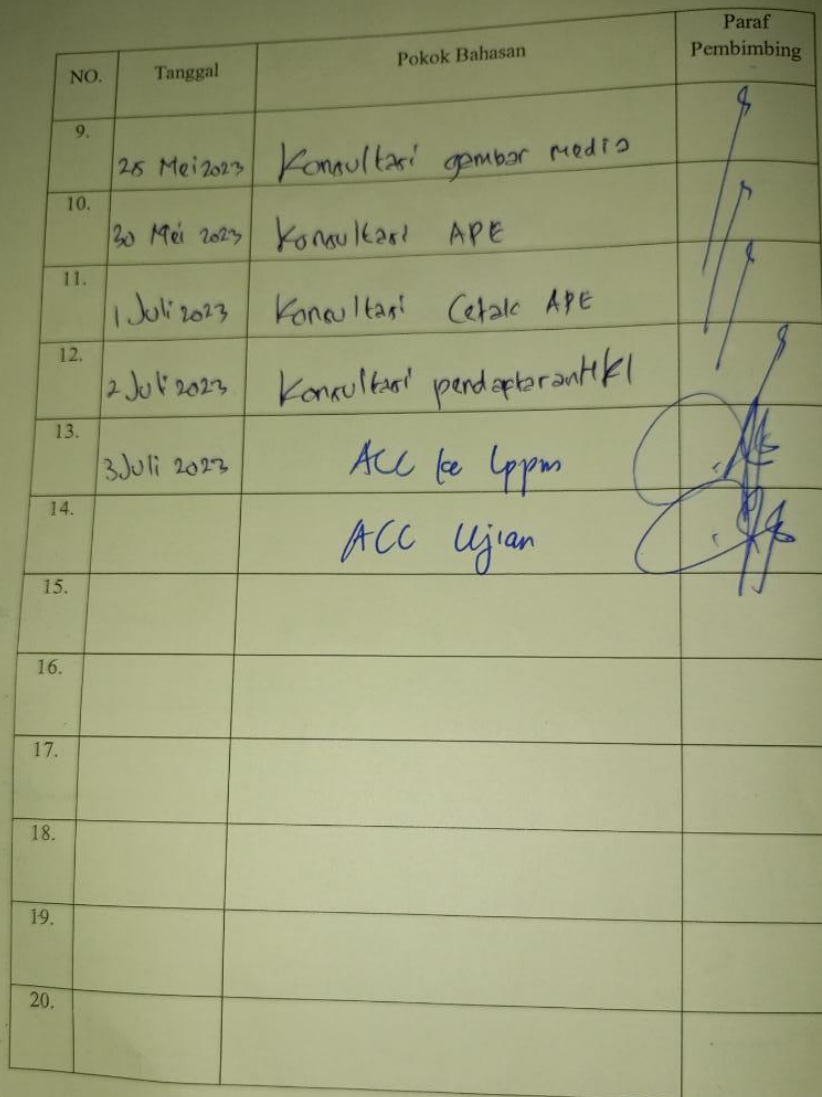 NO. Tanggal Pokok Bahasan Paraf Pembimbing
9. Mei 2023 Konsultasi gambar media
10. 30 Mei 2023 Konsultasi APE
11. 1 Juli 2023 Konsultasi Cetak APE
12. 2 Juli 2023 Konsultasi
13. 3 Juli 2023 ACC ke lppm
14. ACC Ujian
15.
16.
17.
18.
19.
20.